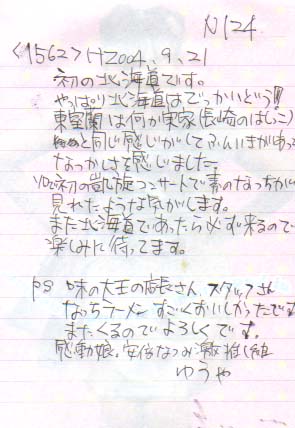 N124
<1562> H2004.9.21
初の北海道です。
やっぱり北海道はでっかいどう!!
東室蘭は何か実家(長崎のはしっこ)
と同じ感じがしてふんいきがあって
なつかしさを感じました。
ソロで初の凱旋コンサートで素のなっちがい
見れたような気がします。
また北海道であったら必ず来るので
楽しみに待ってます。
PS 味の大王の店長さん、スタッフさん
なっちラーメン すごくおいしかったです
またくるのでよろしくです。
感動娘。安倍なつみ激推し組
ゆうや